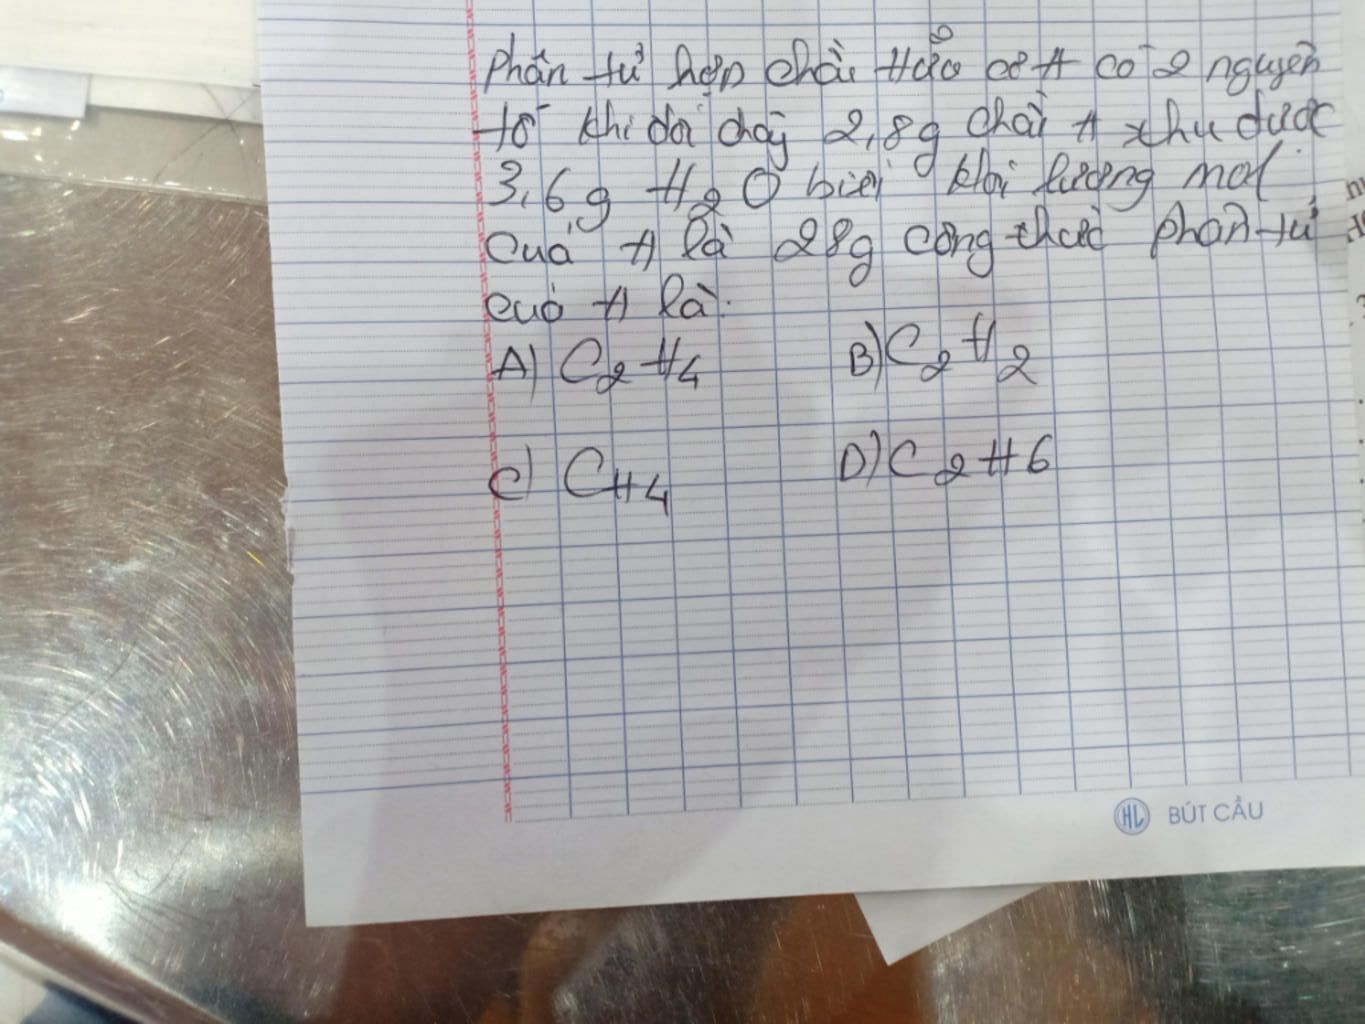 phân tử hợp chất Hữu cơ A có 2 nguyên
tố khi đốt cháy 2,8g chất A thu được
3,6g H2O biết khối lượng mol
của A là 28g công thức phân tử
của A là:
A) C2H4 B) C2H2
C) CH4 D) C2H6
HL BÚT CẦU